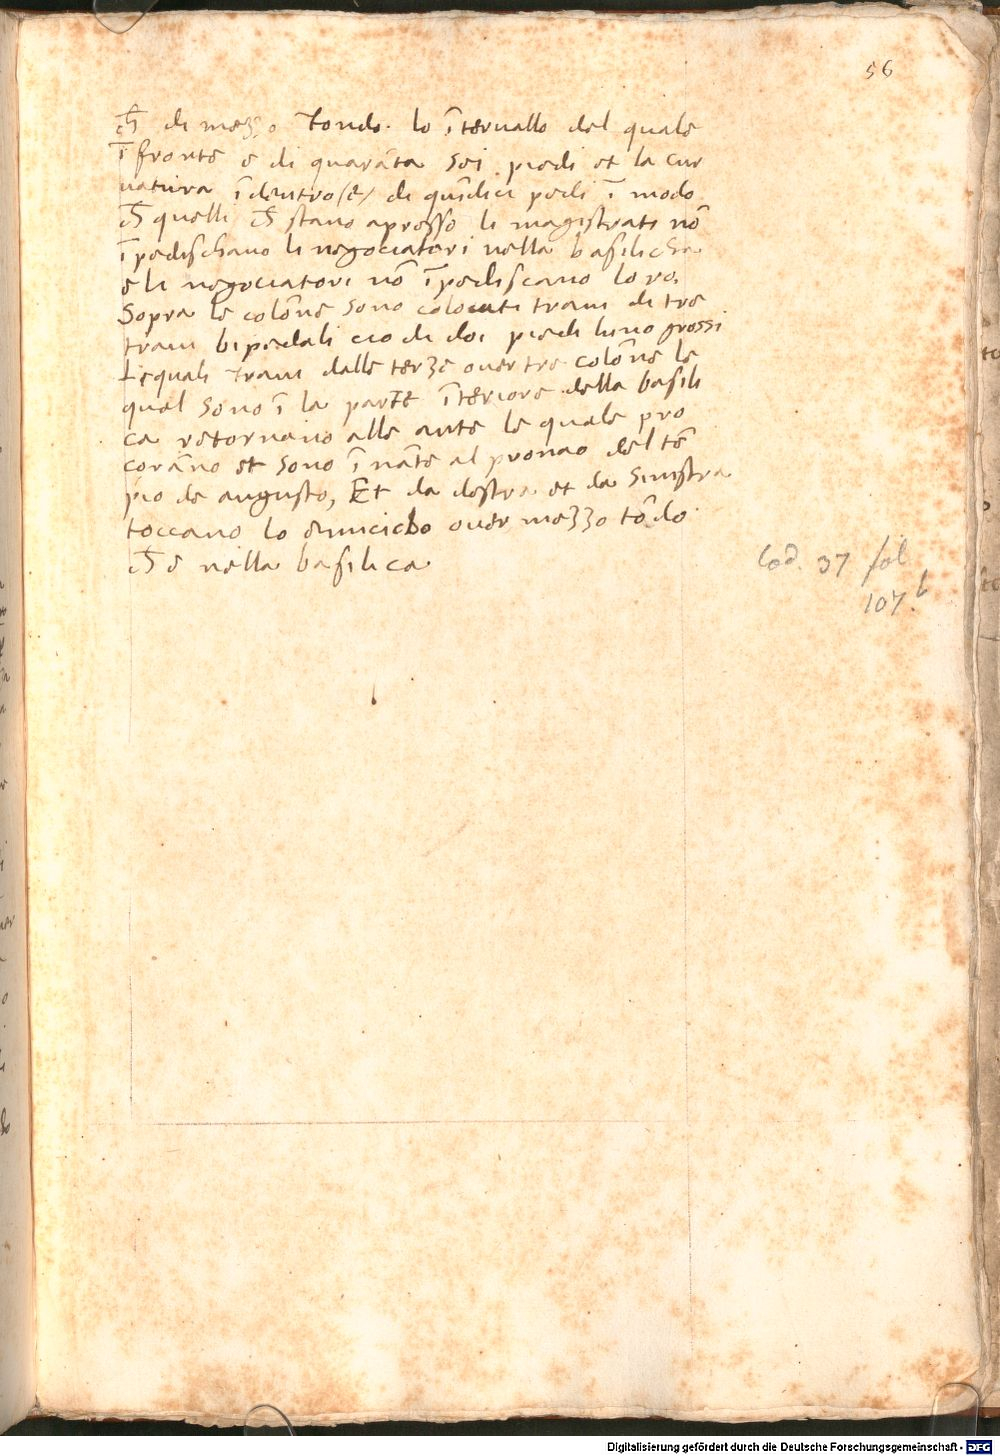 56
ch̄ di mezzo tondo. lo ītervallo del quale
ī fronte e di quarāta sei piedi et la cur
vatura īdentro (e) di quīdici pedi ī modo
ch̄ quelli ch̄ stano apresso li magistrati nō
īpedischano li negociatori nella basilicha
e li negociatori nō īpediscano loro.
Sopra le colōne sono colocati travi di tre
travi bipedali cio di doi piedi luno grossi
Lequali travi dalle terze over tre colōne le
qual sono ī la parte īteriore della basili
ca retornano alle ante le quale pro
corāno et sono ī nāte al pronao del tē
pio de augusto, Et da destra et da sinistra
toccano lo emiciclo over mezzo tōdo
ch̄ e nella basilica
Cod. 37 fol
107.b
Digitalisierung gefördert durch die Deutsche Forschungsgemeinschaft - DFG